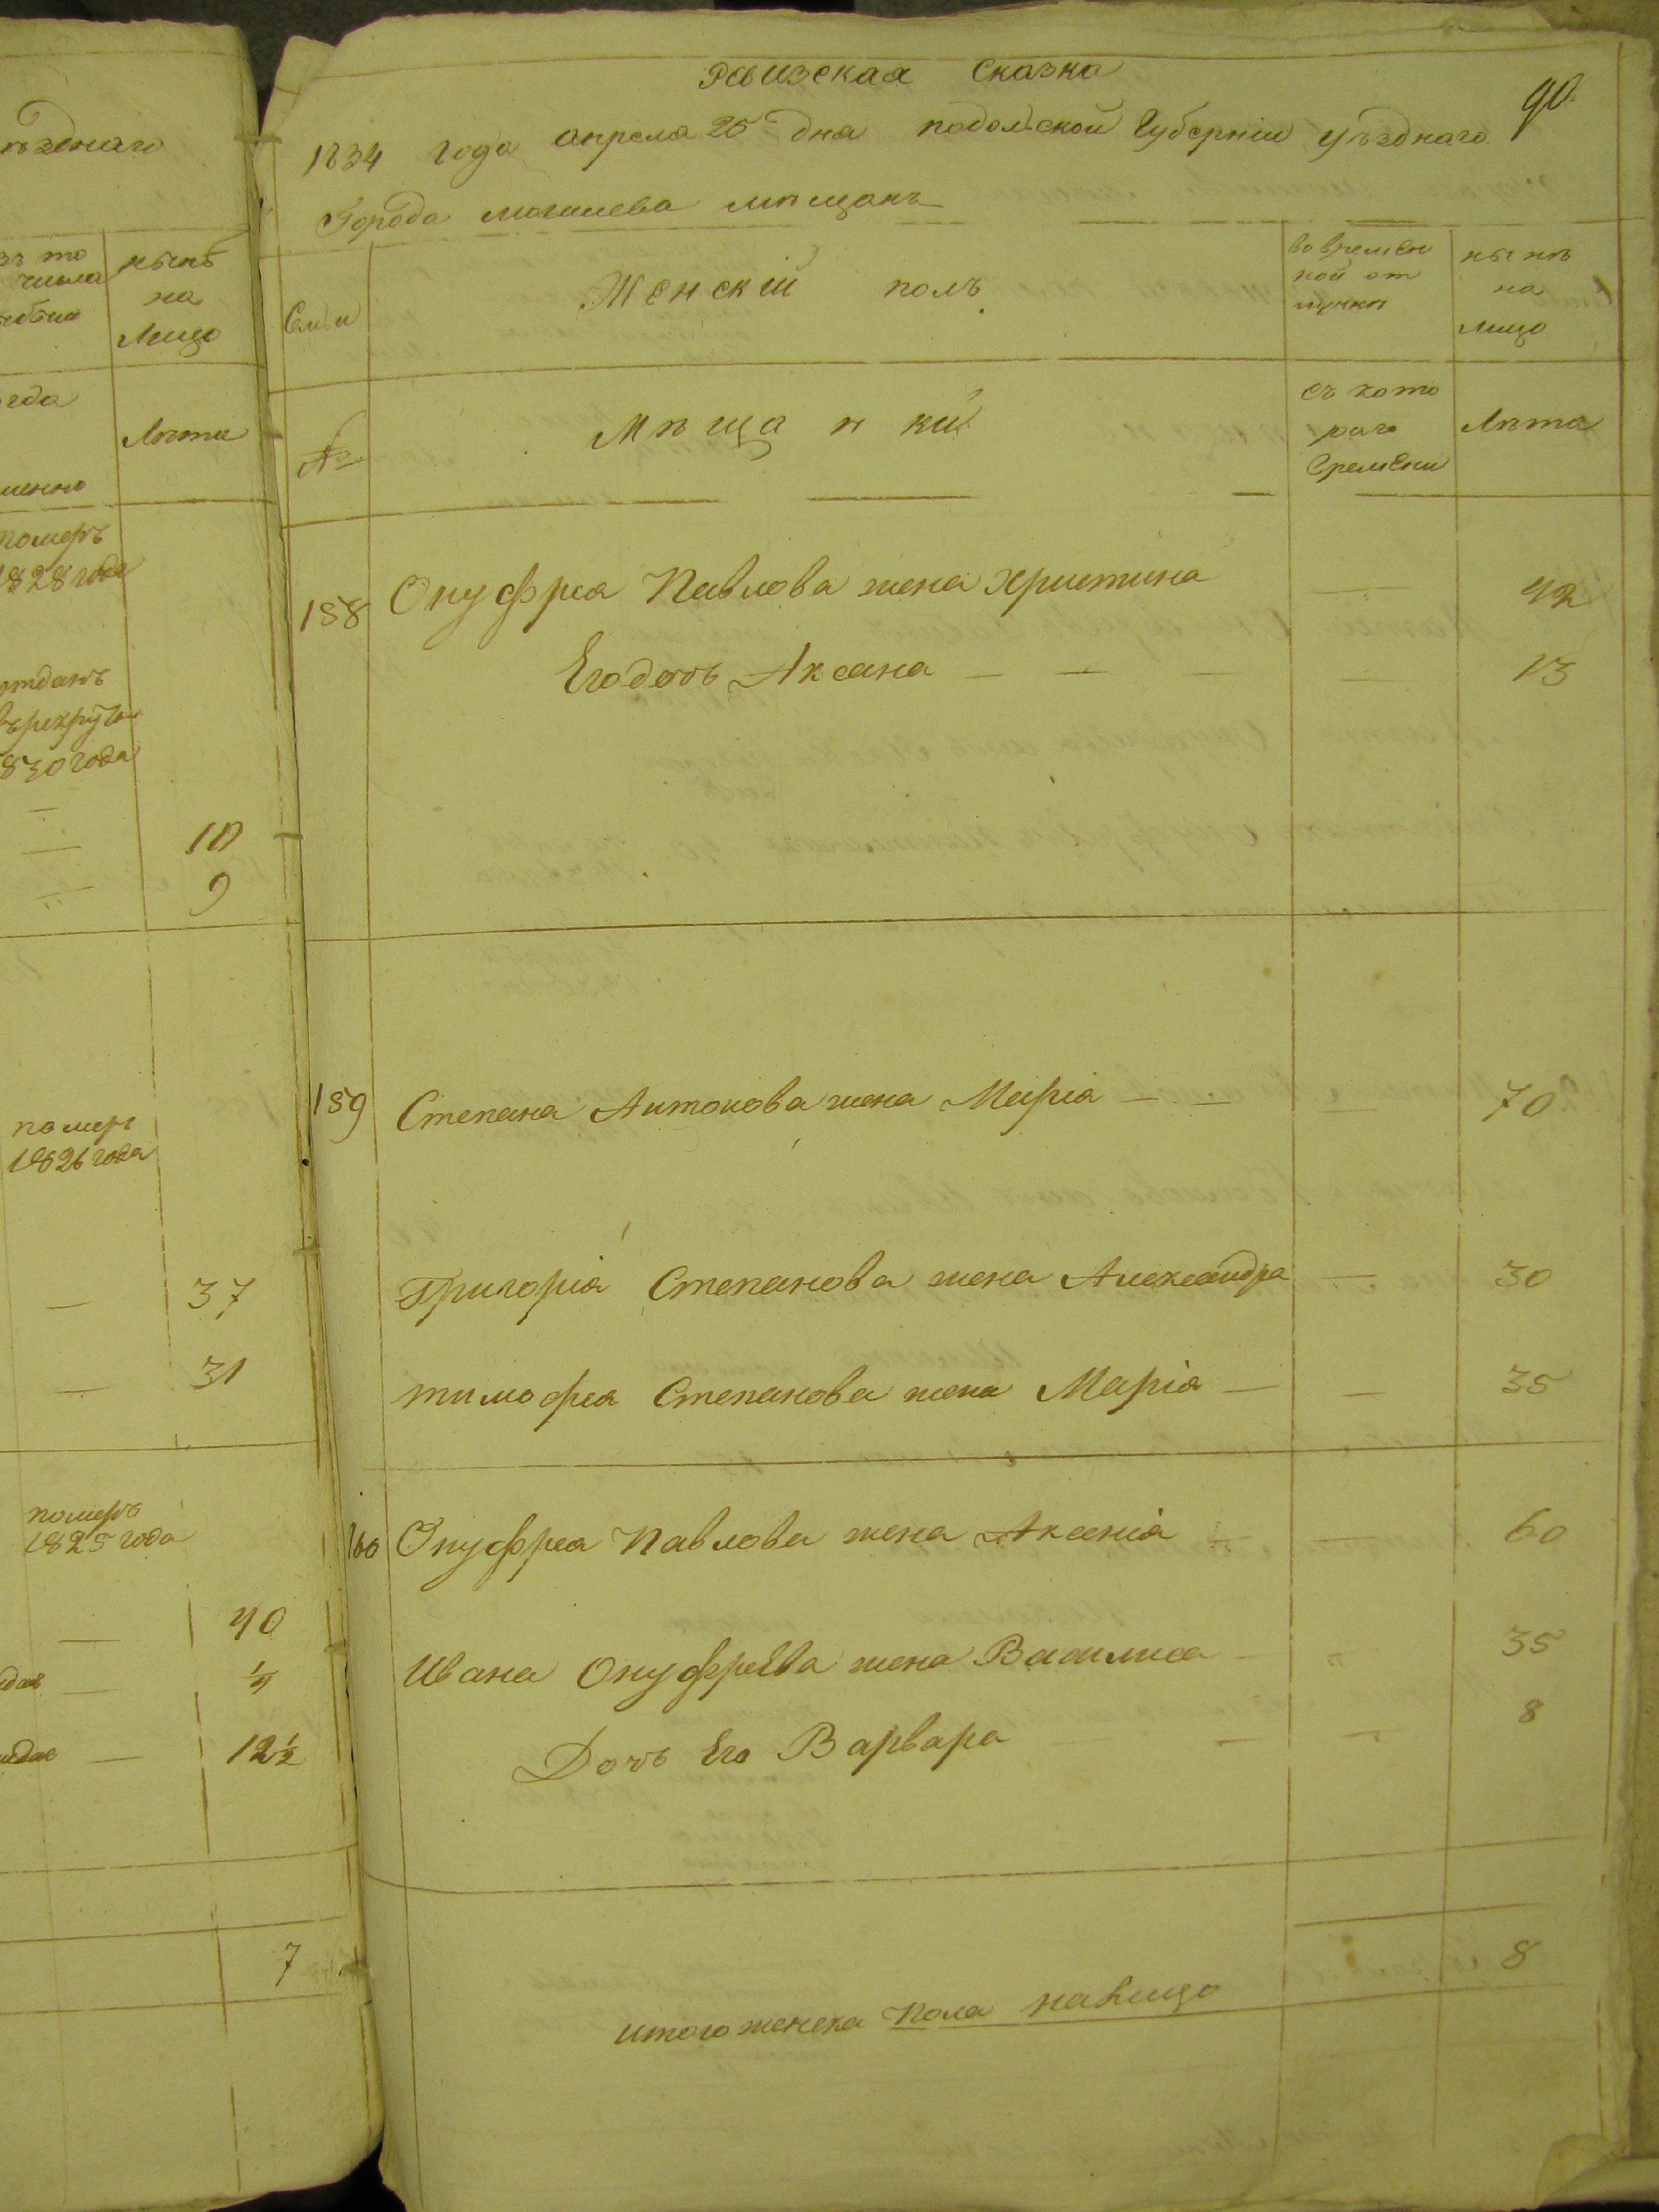 ѣзднаго
нынѣ
на
Лицо
Лѣта
померъ
1828 года
отданъ
въ рекруты
830 года
10
9
померъ
1826 года
37
31
померъ
1825 года
40
1/4
12 1/2
7
Ревизская Сказка
90.
1834 года апреля 25 дня подольской Губерніи уѣзднаго
Города могилева мѣщанъ
Семьи
Женский полъ
во времен
ной от
лучки
нынѣ
на
лицо
№
Мѣщанки
съ кото
раго
времени
Лѣта
158 Онуфрея Павлова жена Христина — 42
Его дочь Аксана — — — — 13
159 Степана Антонова жена Марія — — 70
Григорія Степанова жена Александра — 30
тимофея Степанова жена Марія — — 35
160 Онуфрея Павлова жена Аксенія — — 60
Ивана Онуфреева жена Василиса — 35
Дочь Его Варвара — — — 8
итого женска пола на лицо 8